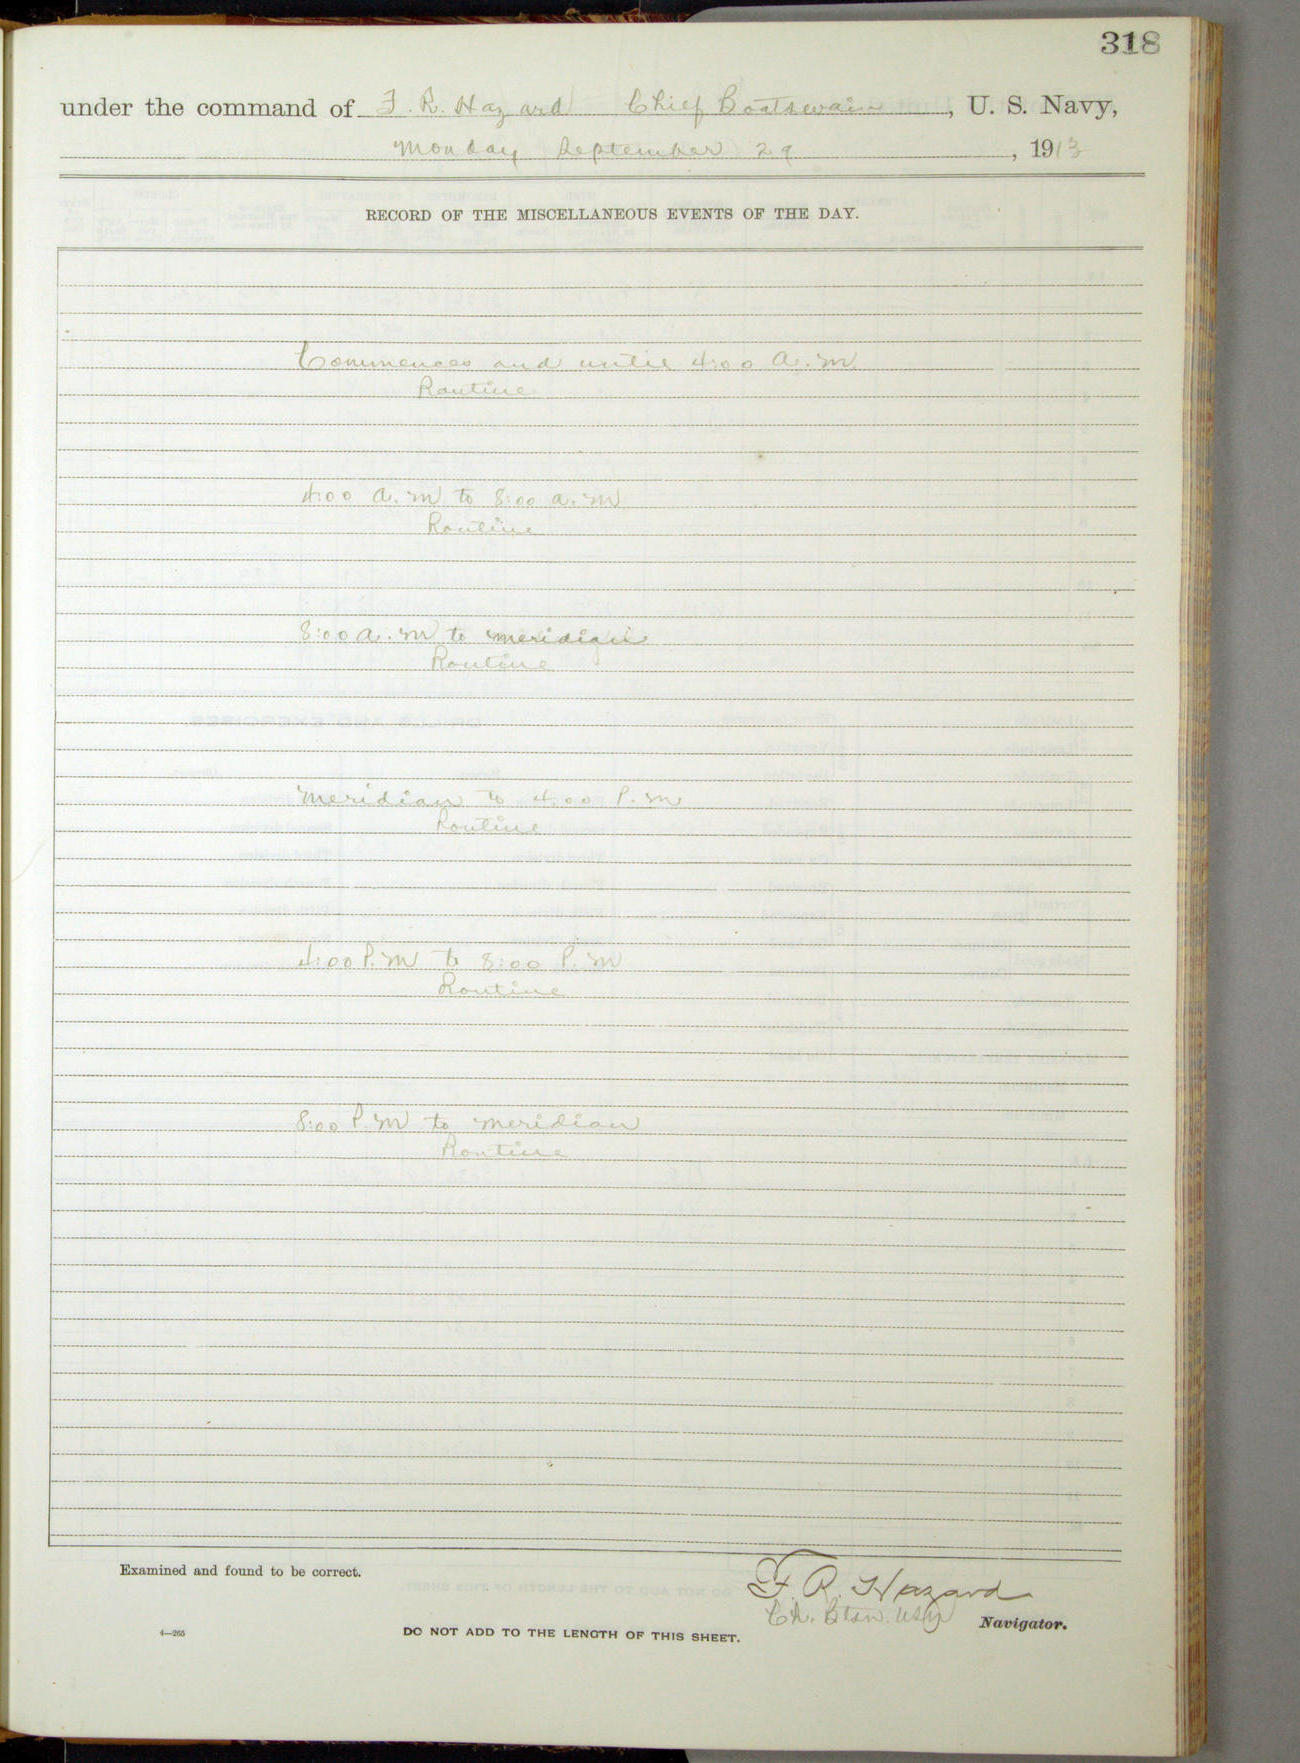 318
under the command of F. R. Hazard Chief Boatswain, U. S. Navy,
Monday September 29, 1913
RECORD OF THE MISCELLANEOUS EVENTS OF THE DAY.
Commences and until 4:00 a.m
Routine
4:00 a.m to 8:00 a.m
Routine
8:00 a.m to meridian
Routine
Meridian to 4:00 P.m
Routine
4:00 P.m to 8:00 P.m
Routine
8:00 P.m to meridian
Routine
Examined and found to be correct.
F. R. Hazard
Ch. Btsn. USN Navigator.
4—265
DO NOT ADD TO THE LENGTH OF THIS SHEET.